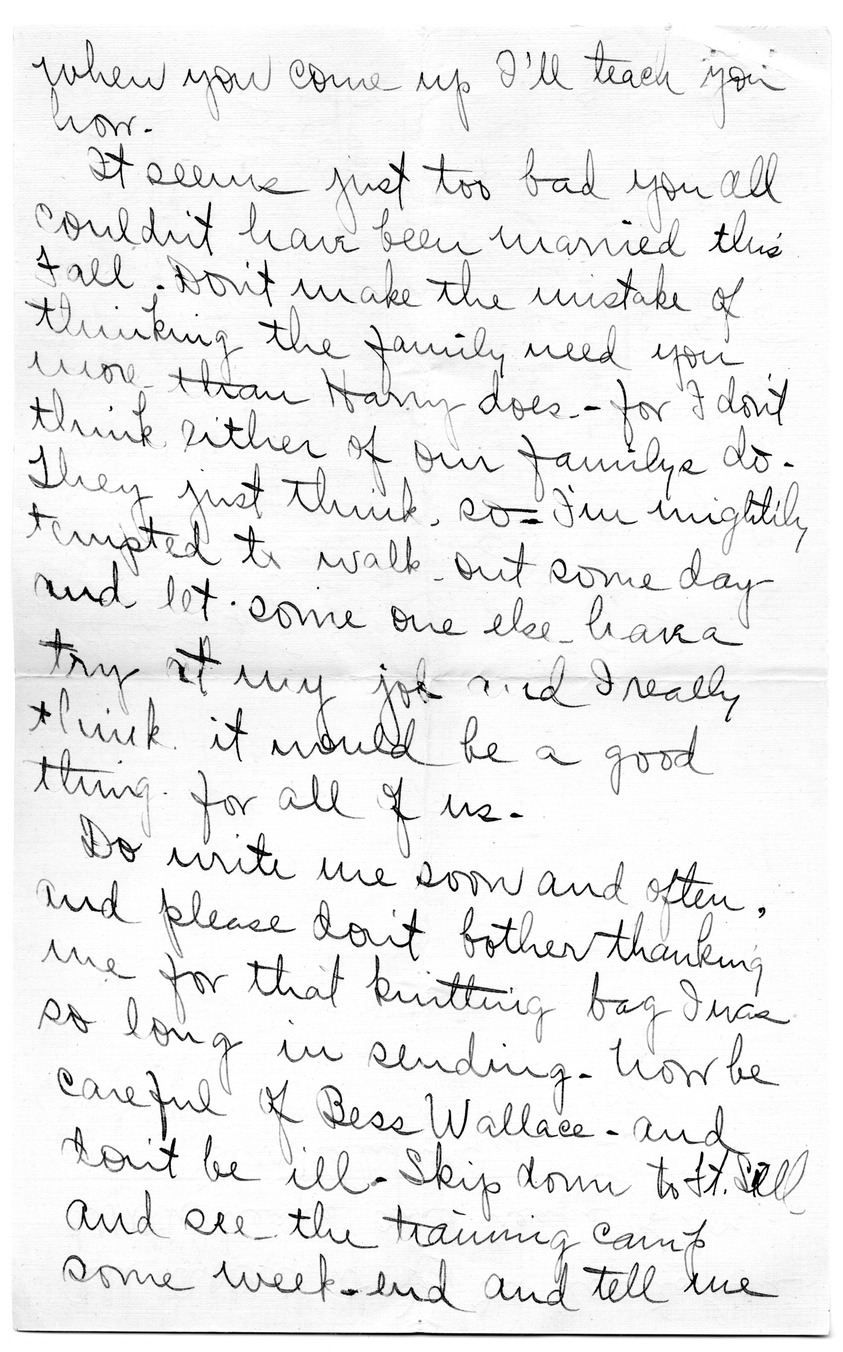 when you come up I'll teach you
how.
It seems just too bad you all
couldn't have been married this
Fall. Don't make the mistake of
thinking the family need you
more than Harry does - for I don't
think either of our familys do.
They just think so - I'm mightily
tempted to walk out some day
and let some one else have a
try at my job and I really
think it would be a good
thing for all of us -
Do write me soon and often,
and please don't bother thanking
me for that knitting bag I was
so long in sending - Now be
careful of Bess Wallace - and
don't be ill - Skip down to Ft. Sill
and see the training camp
some week-end and tell me